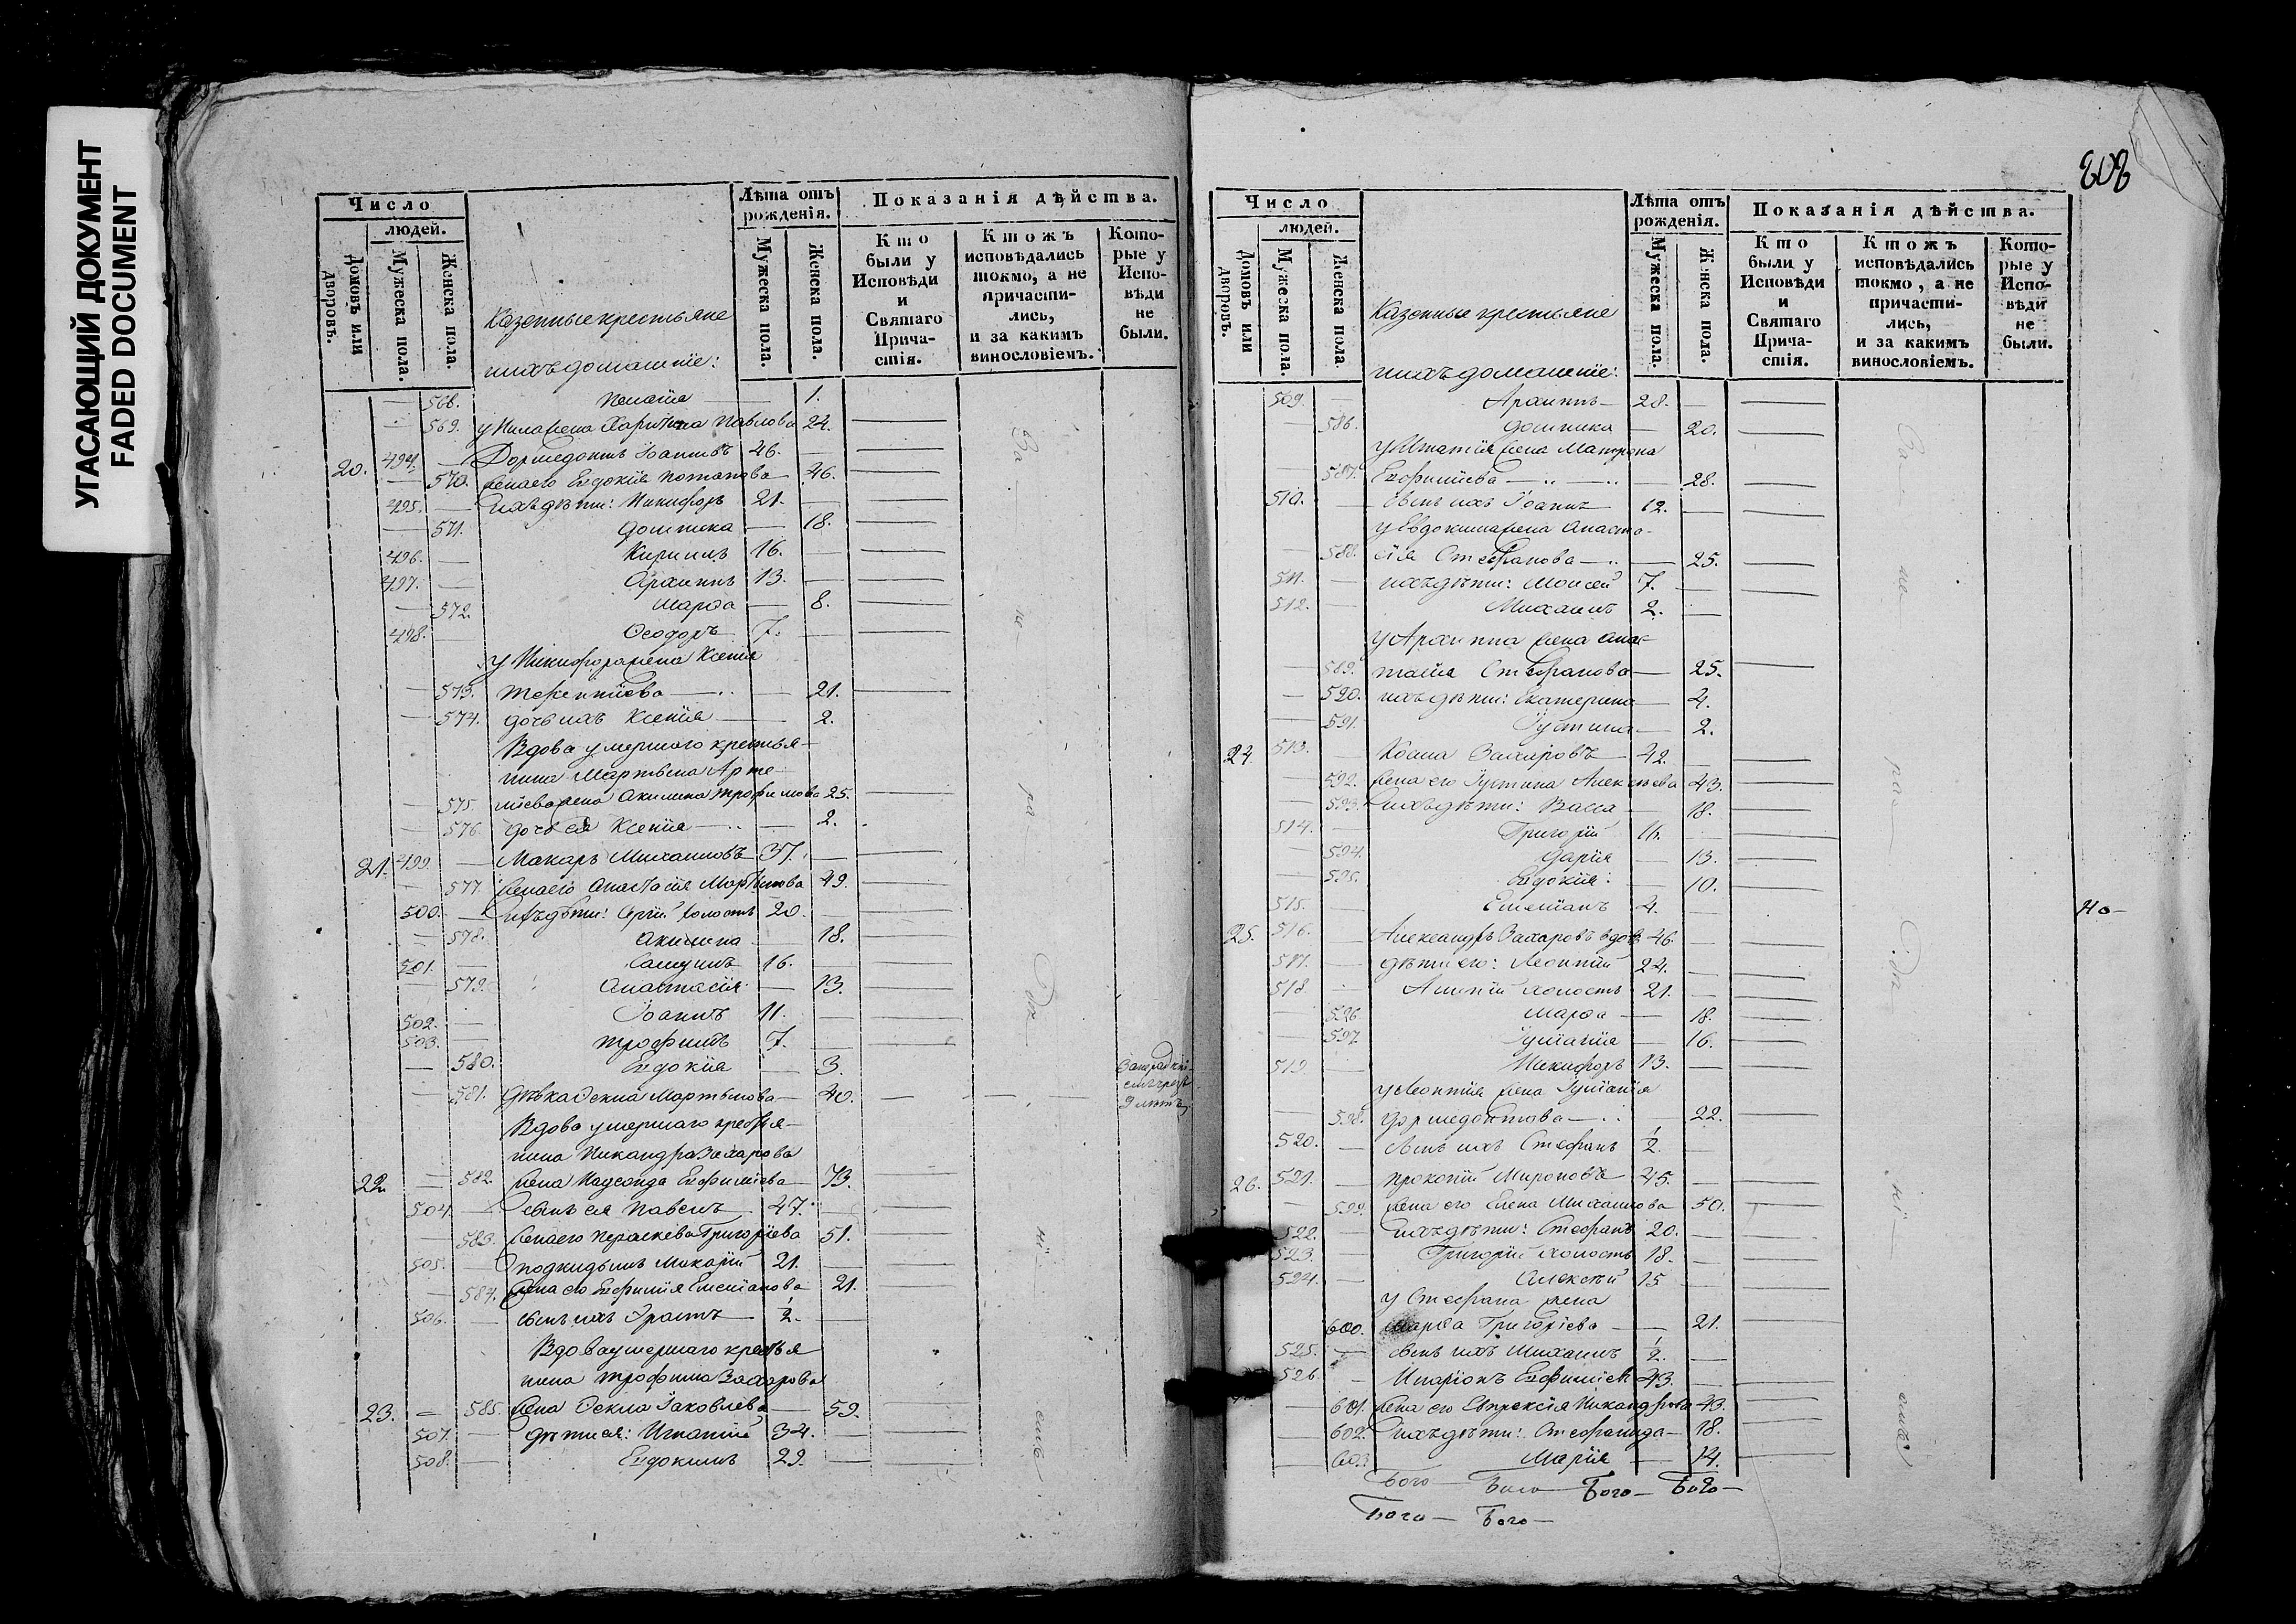 УГАСАЮЩИЙ ДОКУМЕНТ
FADED DOCUMENT
Число
людей.
Домовъ или дворовъ.
Мужеска пола.
Женска пола.
Казенные крестьяне
и ихъ домашніе:
Лѣта отъ рожденія.
Мужеска пола.
Женска пола.
Показанія дѣйства.
Кто были у Исповѣди и Святаго Причастія.
Ктожъ исповѣдались токмо, а не причастились, и за какимъ винословіемъ.
Которые у Исповѣди не были.
— 568. Пелагія — 1.
— 569. у Нила жена Харитина Павлова 24.
20. 494. — Дормедонтъ Іоанновъ 46. —
— 570. жена его Евдокія Потапова — 46.
495. — ихъ дѣти: Никифоръ 21. —
— 571. Домника — 18.
496. — Кириллъ 16. —
497. — Архиппъ 13. —
— 572. Марѳа — 8.
498. — Ѳеодоръ 7. —
у Никифора жена Ксенія
— 573. Терентіева — 21.
— 574. дочь ихъ Ксенія — 2.
Вдова умершаго крестья-
нина Мартына Арте-
— 575. міева жена Акилина Трофимова 25.
— 576. дочь ея Ксенія — 2.
21. 499. — Макаръ Михаиловъ 37. —
— 577. жена его Анастасія Мартынова 49.
500. — ихъ дѣти: Сергій холостъ 20. —
— 578. Акилина — 18.
501. — Самуилъ 16. —
— 579. Анастасія — 13.
502. — Іоаннъ 11. —
503. — Трофимъ 7. —
— 580. Евдокія — 3.
— 581. дѣвка Ѳекла Мартынова — 40. — — —
Вдова умершаго крестья-
нина Никандра Захарова
22. — 582. жена Надежда Евфиміева — 73.
504. — сынъ ея Павелъ 47. —
— 583. жена его Параскева Григоріева 51.
505. — подкидышъ Макарій 21. —
— 584. жена его Евфимія Емеліанова 21.
506. — сынъ ихъ Ерастъ 1/2. —
Вдова умершаго крестья
нина Трофима Захарова
23. — 585. жена Ѳекла Іаковлева — 59.
507. — дѣти ея: Игнатій 34. —
508. — Евдокимъ 29. —
Число
людей.
Домовъ или дворовъ.
Мужеска пола.
Женска пола.
Казенные крестьяне
и ихъ домашніе:
Лѣта отъ рожденія.
Мужеска пола.
Женска пола.
Показанія дѣйства.
Кто были у Исповѣди и Святаго Причастія.
Ктожъ исповѣдались токмо, а не причастились, и за какимъ винословіемъ.
Которые у Исповѣди не были.
509. — Архиппъ — 28. —
— 586. Домника — 20.
у Игнатія жена Матрона
— 587. Евфиміева — 28.
510. — сынъ ихъ Іоаннъ 12. —
у Евдокима жена Анаста-
— 588. сія Стефанова — 25.
511. — ихъ дѣти: Моисей 7. —
512. — Михаилъ 2. —
у Архиппа жена Анас-
— 589. тасія Стефанова — 25.
— 590. ихъ дѣти: Екатерина — 4.
— 591. Іустина — 2.
24. 513. — Косма Захаровъ 42. —
— 592. жена его Іустина Алексѣева 43.
— 593. ихъ дѣти: Васса — 18.
514. — Григорій 16. —
— 594. Дарія — 13.
— 595. Евдокія — 10.
515. — Емеліанъ 4. —
25. 516. — Александръ Захаровъ вдовъ 46. —
517. — дѣти его: Леонтій 24. —
518. — холостъ 21. —
— 596. Марѳа — 18.
— 597. Іуліанія — 16.
519. — Никифоръ 13. —
у Леонтія жена Іуліанія
— 598. Дормедонтова — 22.
520. — сынъ ихъ Стефанъ 1/2. —
26. 521. — Прокопій Мироновъ 45. —
— 599. жена его Елена Михаилова 50.
522. — ихъ дѣти: Стефанъ 20. —
523. — Григорій холостъ 18. —
524. — Алексѣй 15. —
у Стефана жена
600. Марѳа Григоріева — 21.
525. — сынъ ихъ Михаилъ 1/2. —
526. — Иларіонъ Евфиміевъ 43. —
— 601. жена его Евпраксія Никандрова 43.
— 602. ихъ дѣти: Стефанида — 18.
— 603. Марія — 14.
Бого — Бого — Бого — Бого —
Бого — Бого —
Но —